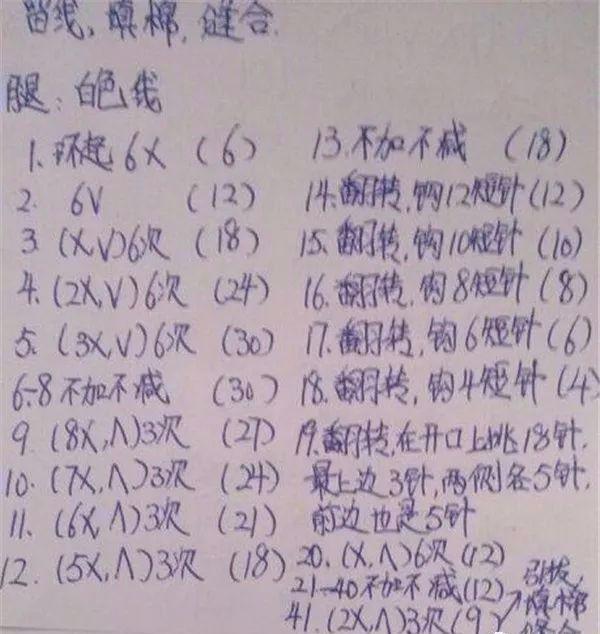 留线, 填棉, 缝合.
腿: 白色线
1. 环起 6X (6)
2. 6V (12)
3. (X,V)6次 (18)
4. (2X,V)6次 (24)
5. (3X,V)6次 (30)
6-8 不加不减 (30)
9. (8X,Λ)3次 (27)
10. (7X,Λ)3次 (24)
11. (6X,Λ)3次 (21)
12. (5X,Λ)3次 (18)
13. 不加不减 (18)
14. 翻转, 钩12短针(12)
15. 翻转, 钩10短针 (10)
16. 翻转, 钩8短针 (8)
17. 翻转, 钩6短针 (6)
18. 翻转, 钩4短针 (4)
19. 翻转, 在开口上挑18针,
最上边3针, 两侧各5针,
前边也是5针
20. (X,Λ)6次 (12)
21-40 不加不减(12)
41. (2X,Λ)3次(9)
引拔,
填棉
缝合